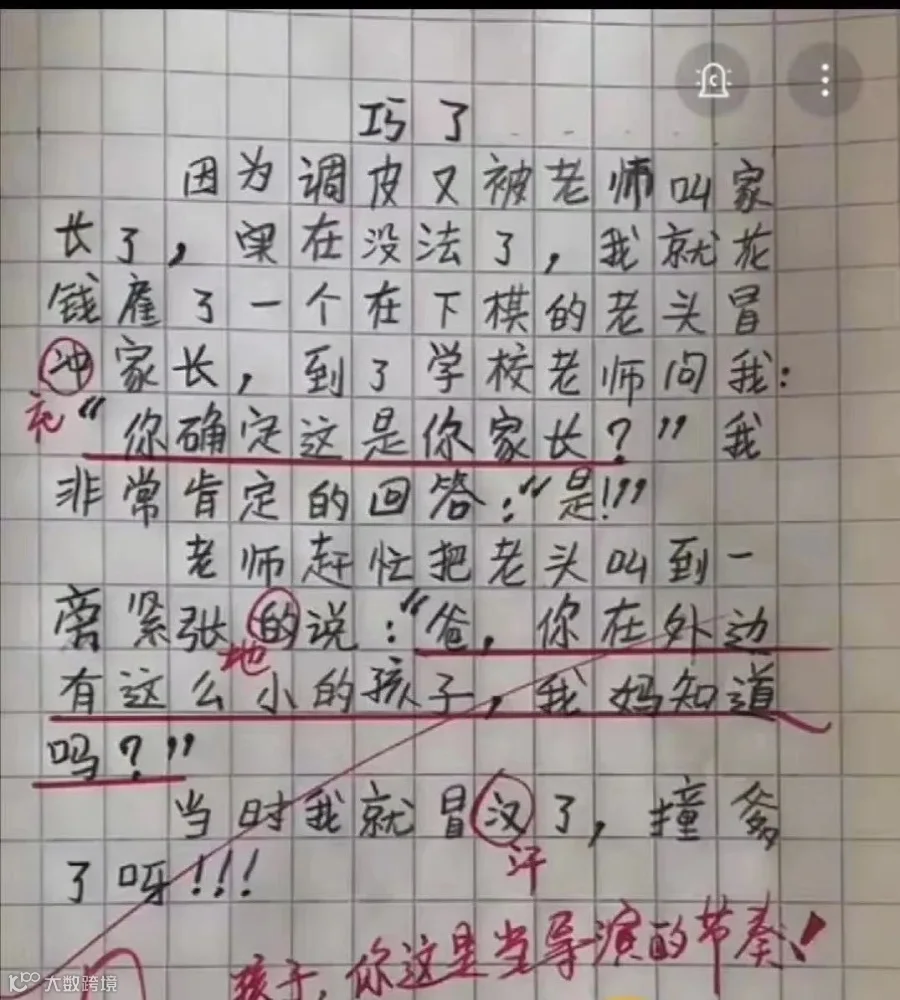 巧了
因为调皮又被老师叫家
长了，实在没法了，我就花
钱雇了一个在下棋的老头冒
冲家长，到了学校老师问我：
充
“你确定这是你家长？”我
非常肯定的回答：“是！”
老师赶忙把老头叫到一
旁紧张的说：“爸，你在外边
地
有这么小的孩子，我妈知道
吗？”
当时我就冒汉了，撞爹
汗
了呀！！！
孩子，你这是当导演的节奏！
大数跨境